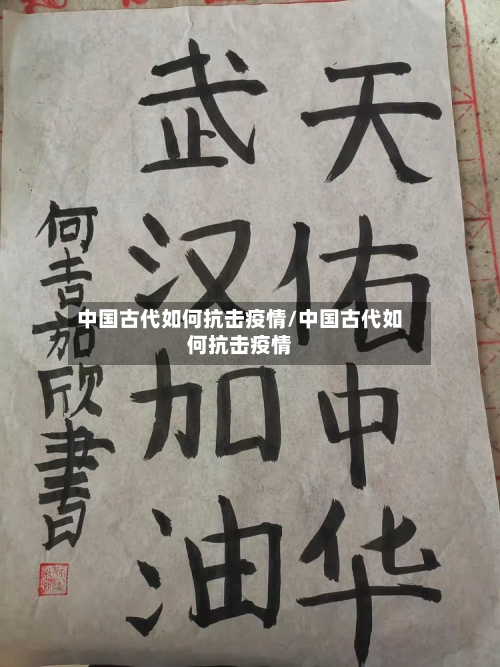 天佑中华
武汉加油
何吉茄欣書
中国古代如何抗击疫情/中国古代如
何抗击疫情